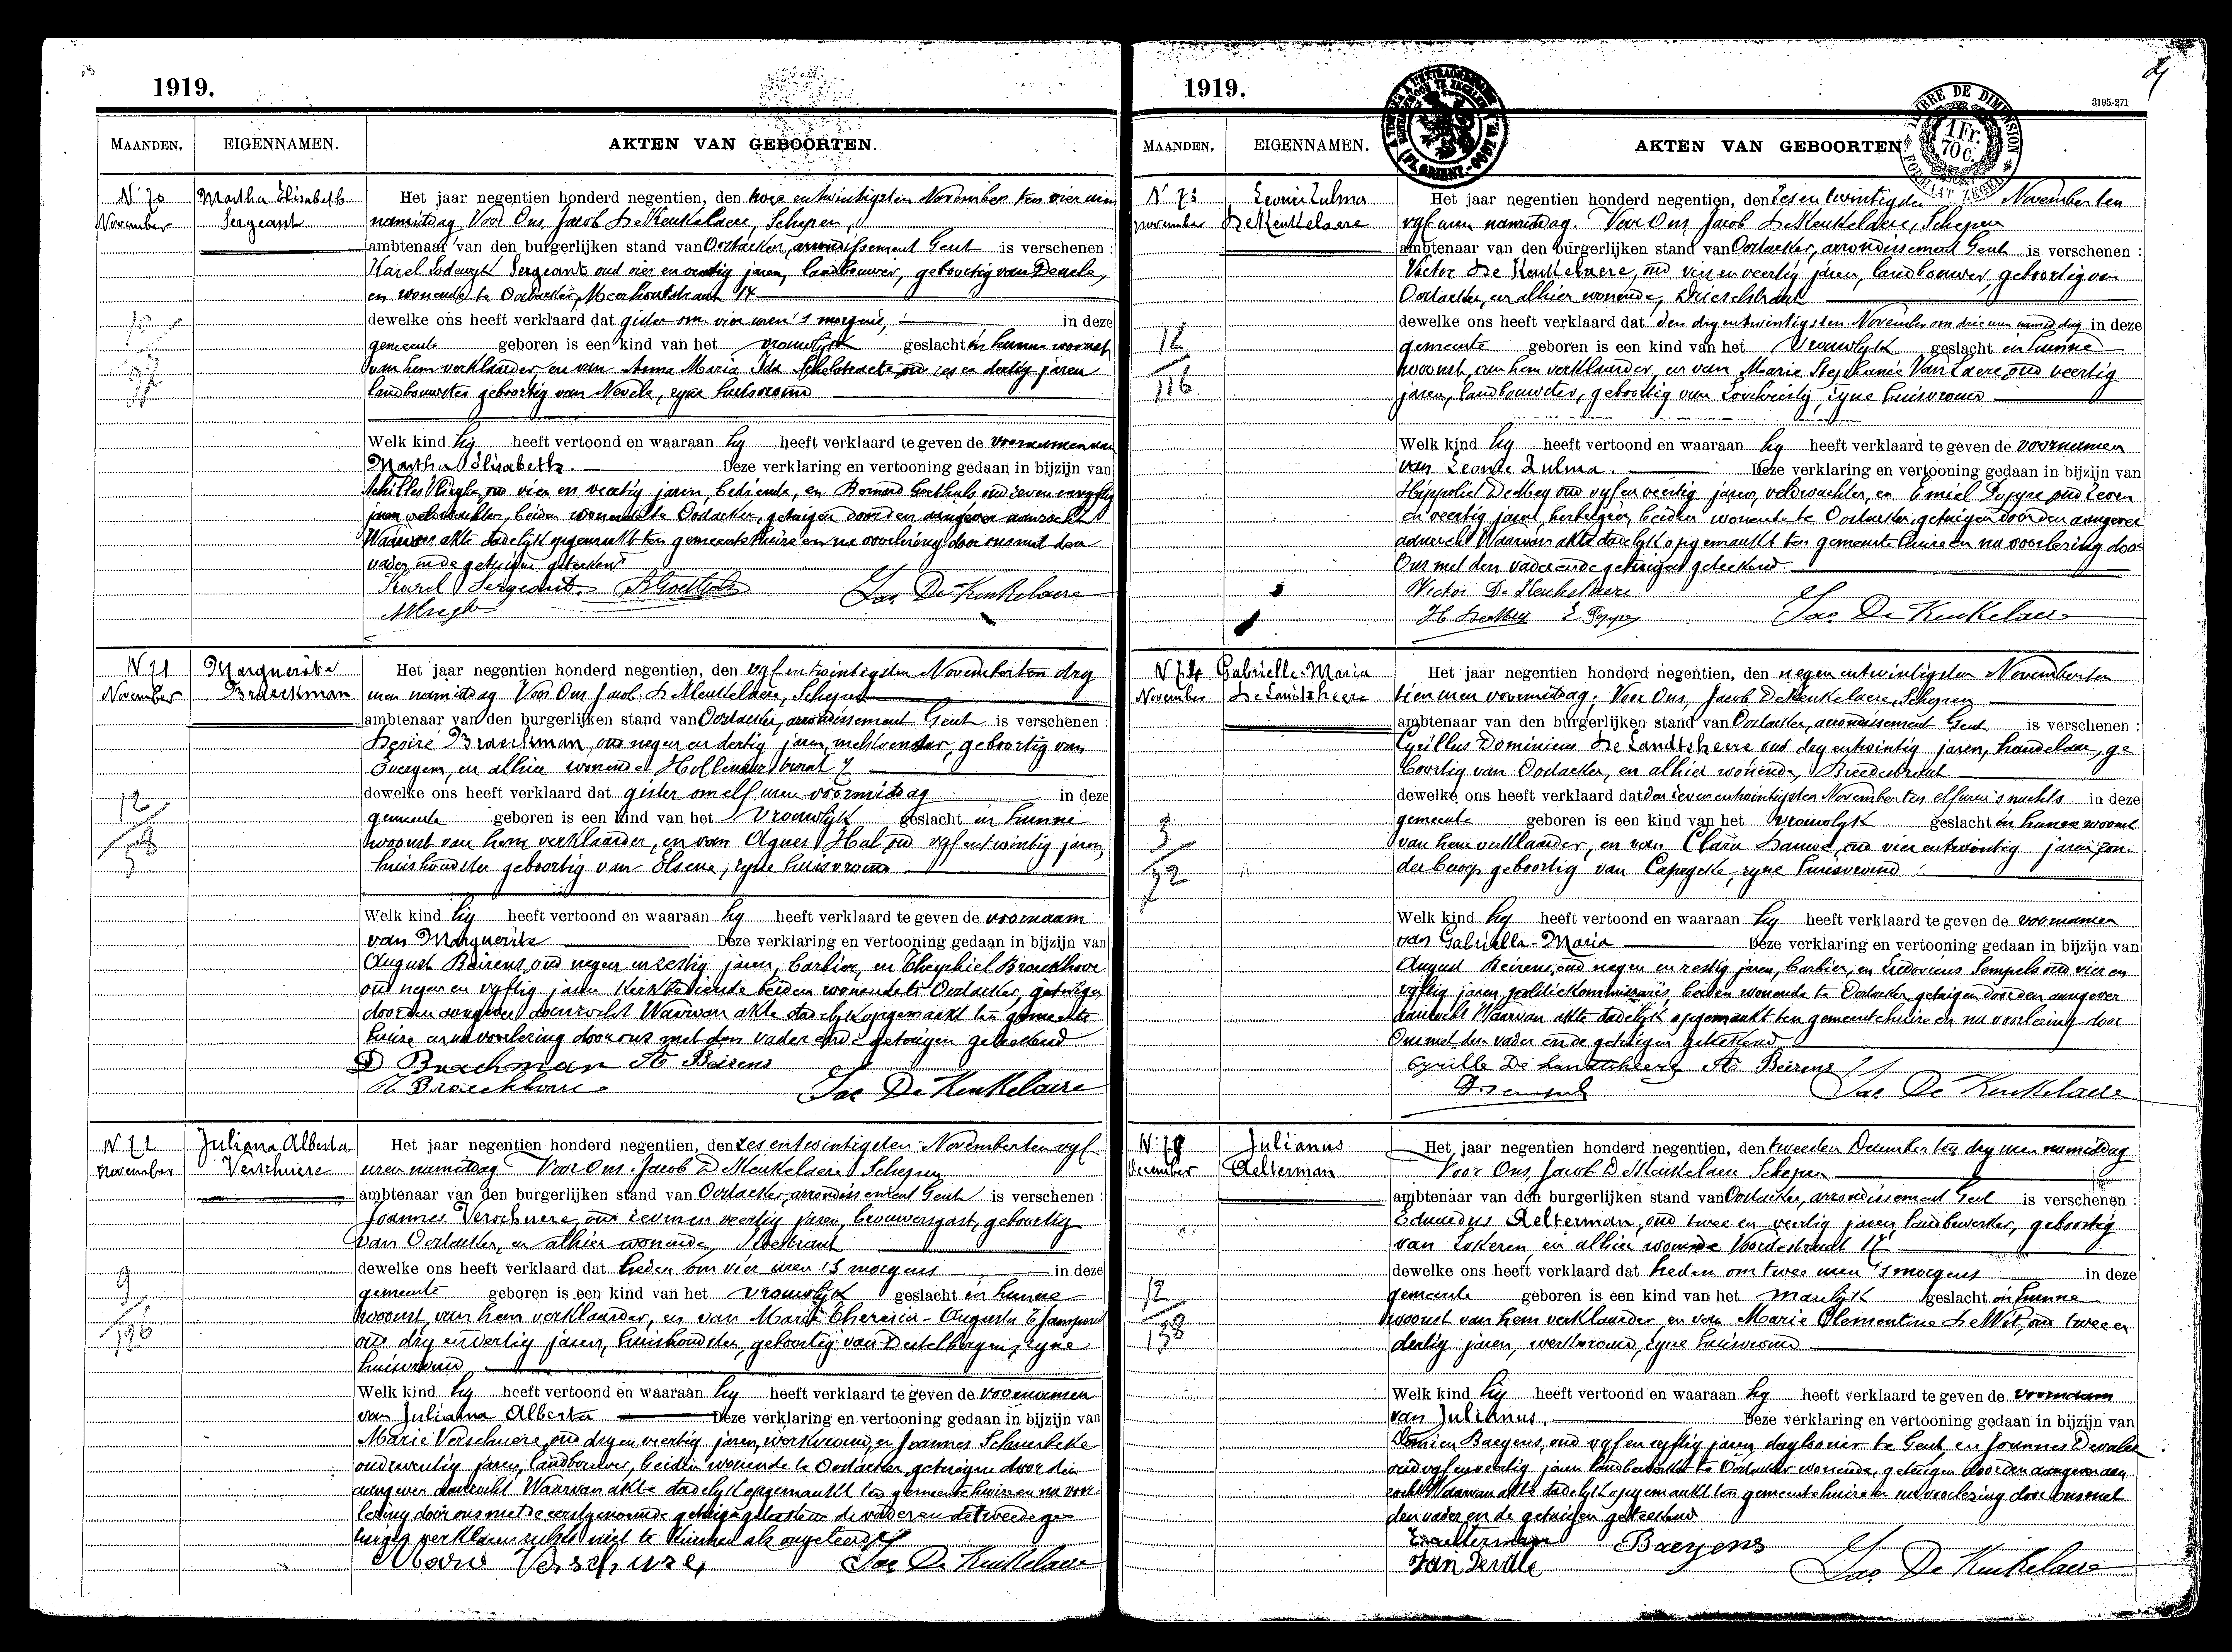 1919.
MAANDEN. EIGENNAMEN. AKTEN VAN GEBOORTEN.
N 70 Martha Elisabeth Het jaar negentien honderd negentien, den twee en twintigsten November ten vier uren
November Sergeant namiddag Voor Ons, Jacob De Keukelaere, Schepen,
ambtenaar van den burgerlijken stand van Oostacker, arrondissement Gent is verschenen :
Karel Lodewyk Sergeant oud vier en veertig jaren, landbouwer, geboortig van
en wonende te Oostacker, Meerhoutstraat 14
dewelke ons heeft verklaard dat gister om vier uren 's morgens, in deze
gemeente geboren is een kind van het vrouwlyk geslacht in hunne woonst
van hem verklaarder, en van Anna Maria Ida Schelstraete oud zes en dertig jaren
landbouwster geboortig van Nevele, zyne huisvrouw
Welk kind hy heeft vertoond en waaraan hy heeft verklaard te geven de voornamen van
Martha Elisabeth. Deze verklaring en vertooning gedaan in bijzijn van
Achilles oud vier en veertig jaren, bediende, en Bernard Goethals oud zeven en vyftig
jaren veldwachter, beiden wonende te Oostacker, getuigen door den aangever aanzocht
Waarvan akte dadelyk opgemaakt ten gemeentehuize en na voorlezing door ons met den
vader en de getuigen geteekend
Karel Sergeant. B Goethals Jac De Keukelaere
N 71 Marguerite Het jaar negentien honderd negentien, den vyf en twintigsten November ten dry
November Braeckman uren namiddag Voor Ons Jacob De Keukelaere, Schepen
ambtenaar van den burgerlijken stand van Oostacker, arrondissement Gent is verschenen :
Desiré Braeckman, oud negen en dertig jaren, melkventer, geboortig van
Evergem, en alhier wonende Hollenaarstraat 7
dewelke ons heeft verklaard dat gister om elf uren voormiddag in deze
12 gemeente geboren is een kind van het vrouwlyk geslacht in hunne
woonst van hem verklaarder, en van Agnes Hul oud vyf en twintig jaren,
huishoudster geboortig van Elsene, zyne huisvrouw
Welk kind hy heeft vertoond en waaraan hy heeft verklaard te geven de voornaam
van Marguerite Deze verklaring en vertooning gedaan in bijzijn van
August Beirens, oud negen en zestig jaren, barbier, en Broeckhove
oud negen en vyftig jaren kerkbediende beiden wonende te Oostacker, getuigen
door den aangever aanzocht Waarvan akte dadelyk opgemaakt ten gemeente
huize en na voorlezing door ons met den vader en de getuigen geteekend
D Brackman A Beirens
Broeckhove Jac De Keukelaere
N 72 Juliana Alberta Het jaar negentien honderd negentien, den zes en twintigsten November ten vyf
November Verschuere uren namiddag Voor Ons. Jacob De Keukelaere Schepen
ambtenaar van den burgerlijken stand van Oostacker, arrondissement Gent is verschenen :
Joannes Verschuere, oud zeven en veertig jaren, brouwersgast, geboortig
van Oostacker, en alhier wonende,
dewelke ons heeft verklaard dat heden om vier uren 's morgens in deze
9 gemeente geboren is een kind van het vrouwlyk geslacht in hunne
woonst, van hem verklaarder, en van Marie Theresia - Augusta
oud dry en dertig jaren, huishoudster, geboortig van Destelbergen, zyne
huisvrouw
Welk kind hy heeft vertoond en waaraan hy heeft verklaard te geven de voornamen
van Juliana Alberta Deze verklaring en vertooning gedaan in bijzijn van
Marie Verschuere, oud dry en veertig jaren, werkvrouw, en Joannes
oud zeventig jaren, landbouwer, beiden wonende te Oostacker getuigen door den
aangever aanzocht Waarvan akte dadelyk opgemaakt ten gemeentehuize en na voor
lezing door ons met de eerstgenoemde getuige geteekend de vader en de tweede ge
tuigen verklaren zulks niet te kunnen als ongeleerd
Marie Verschure Jac De Keukelaere
1919.
3195-271
TIMBRE DE DIMENSION
1 Fr. 70 C.
FORMAAT ZEGEL
MAANDEN. EIGENNAMEN. AKTEN VAN GEBOORTEN
N 73 Leonie Zulma Het jaar negentien honderd negentien, den zes en twintigsten November ten
november De Keukelaere vyf uren namiddag. Voor Ons Jacob De Keukelaere, Schepen
ambtenaar van den burgerlijken stand van Oostacker, arrondissement Gent is verschenen :
Victor De Keukelaere, oud en veertig jaren, landbouwer, geboortig van
Oostacker, en alhier wonende, Drieschstraat
dewelke ons heeft verklaard dat den dry en twintigsten November om drie uren namiddag in deze
12 gemeente geboren is een kind van het vrouwlyk geslacht in hunne
116 woonst, van hem verklaarder, en van Marie Stephanie Van Laere oud veertig
jaren, landbouwster, geboortig van Loochristy, zyne huisvrouw
Welk kind hy heeft vertoond en waaraan hy heeft verklaard te geven de voornamen
van Leonie Zulma. Deze verklaring en vertooning gedaan in bijzijn van
Hippoliet oud vyf en veertig jaren, veldwachter, en Emiel oud zeven
en veertig jaren herbergier, beiden wonende te Oostacker, getuigen door den aangever
aanzocht Waarvan akte dadelyk opgemaakt ten gemeente huize en na voorlezing door
Ons met den vader en de getuigen geteekend
Victor De Keukelaere
Jac De Keukelaere
N 74 Gabrielle-Maria Het jaar negentien honderd negentien, den negen en twintigsten November ten
November De Landtsheere tien uren voormiddag. Voor Ons, Jacob De Keukelaere, Schepen
ambtenaar van den burgerlijken stand van Oostacker, arrondissement Gent is verschenen :
Cyrillus Dominicus De Landtsheere oud dry en twintig jaren, handelaar, ge
boortig van Oostacker, en alhier wonende, Breedestraat
dewelke ons heeft verklaard dat den zeven en twintigsten November ten elf uren 's nachts in deze
3 gemeente geboren is een kind van het vrouwlyk geslacht in hunne woonst
van hem verklaarder, en van Clara oud vier en twintig jaren zon
der beroep geboortig van zyne huisvrouw
Welk kind hy heeft vertoond en waaraan hy heeft verklaard te geven de voornamen
van Gabrielle-Maria Deze verklaring en vertooning gedaan in bijzijn van
August Beirens, oud negen en zestig jaren, barbier, en Sempels oud vier en
vyftig jaren politiekommissaris, beiden wonende te Oostacker getuigen door den aangever
aanzocht Waarvan akte dadelyk opgemaakt ten gemeentehuize en na voorlezing door
Ons met den vader en de getuigen geteekend
Cyrille De Landtsheere A Beirens
Jac De Keukelaere
Julianus Het jaar negentien honderd negentien, den tweeden December ten dry uren namiddag
December Aelterman Voor Ons, Jacob De Keukelaere Schepen
ambtenaar van den burgerlijken stand van Oostacker, arrondissement Gent is verschenen :
Eduardus Aelterman, oud twee en veertig jaren, landbewerker, geboortig
van Lokeren, en alhier wonende Voordestraat 17
dewelke ons heeft verklaard dat heden om twee uren 's morgens in deze
12 gemeente geboren is een kind van het manlyk geslacht in hunne
138 woonst van hem verklaarder, en van Marie Clementine De Wit, oud twee en
dertig jaren, werkvrouw, zyne huisvrouw
Welk kind hy heeft vertoond en waaraan hy heeft verklaard te geven de voornaam
van Julianus. Deze verklaring en vertooning gedaan in bijzijn van
Baeyens, oud vyf en vyftig jaren dagloonier te Gent, en Joannes
oud vyf en veertig jaren landbewerker te Oostacker wonende, getuigen door den aangever aan
zocht Waarvan akte dadelyk opgemaakt ten gemeentehuize en na voorlezing door ons met
den vader en de getuigen geteekend
Baeyens
Jac De Keukelaere